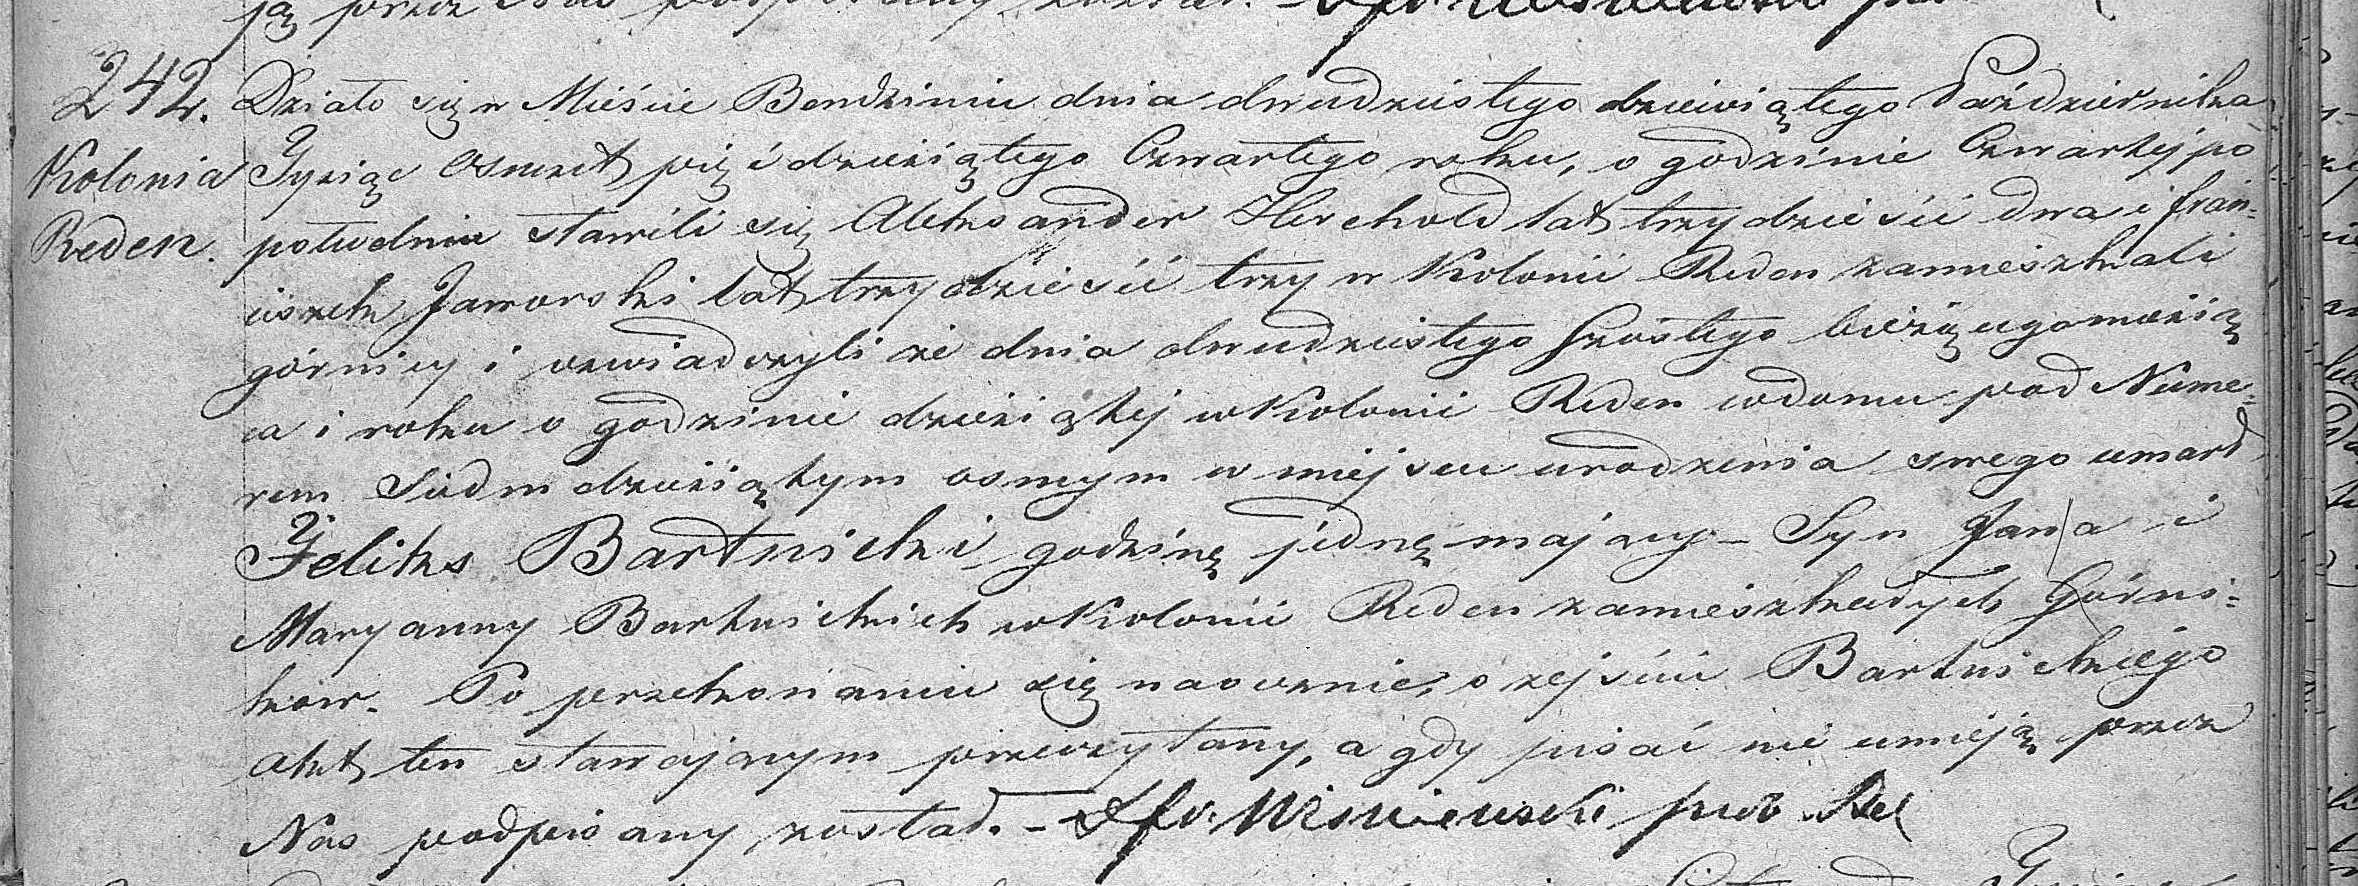 ją przez Nas podpisany został.
242. Działo się w Mieście Bendzinie dnia dwudziestego dziewiątego Października
Kolonia Tysiąc Osmset pięćdziesiątego Czwartego roku, o godzinie Czwartej po
Reden. południu stawili się Aleksander Herchold lat trzydzieści dwa i fran=
ciszek Jaworski lat trzydzieści trzy w Kolonii Reden zamieszkali
górnicy i oświadczyli że dnia dwudziestego Szóstego bieżącego miesią
ca i roku o godzinie dziesiątej w Kolonii Reden w domu pod Nume=
rem Siedmdziesiątym osmym w miejscu urodzenia swego umarł
Feliks Bartnicki godzinę jednę mający – Syn Jana i
Maryanny Bartnickich w Kolonii Reden zamieszkałych Górni=
ków. Po przekonaniu się naocznie, o zejściu Bartnickiego
akt ten stawającym przeczytany, a gdy pisać nie umieją przez
Nas podpisany został. – X fr. Wiśniewski